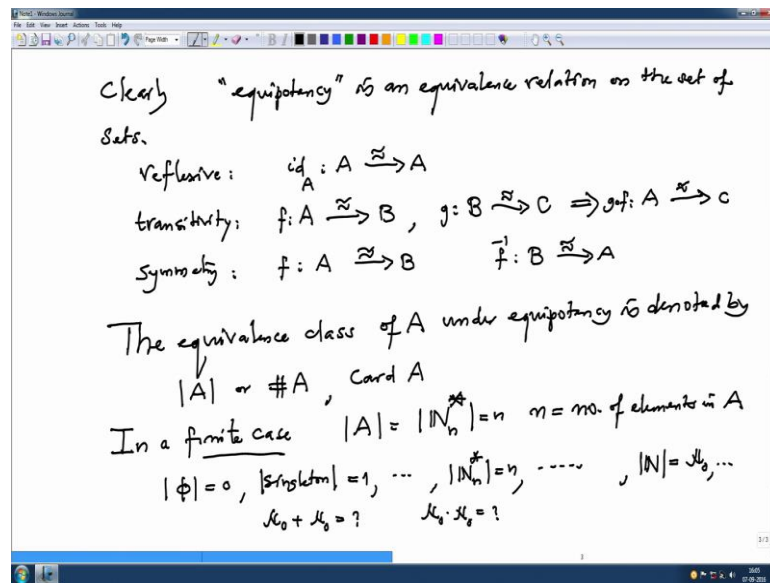 Note1 - Windows Journal
File Edit View Insert Actions Tools Help
Page Width
Clearly "equipotency" is an equivalence relation on the set of
sets.
reflexive: id_A : A ≈→ A
transitivity: f: A ≈→ B, g: B ≈→ C ⇒ g∘f: A ≈→ C
symmetry: f: A ≈→ B f⁻¹: B ≈→ A
The equivalence class of A under equipotency is denoted by
|A| or #A, Card A
In a finite case |A| = |ℕ*_n| = n n = no. of elements in A
|ϕ| = 0, |singleton| = 1, ..., |ℕ*_n| = n, ....., |ℕ| = ℵ₀, ...
ℵ₀ + ℵ₀ = ? ℵ₀ · ℵ₀ = ?
3/3
3
1605
07-09-2018